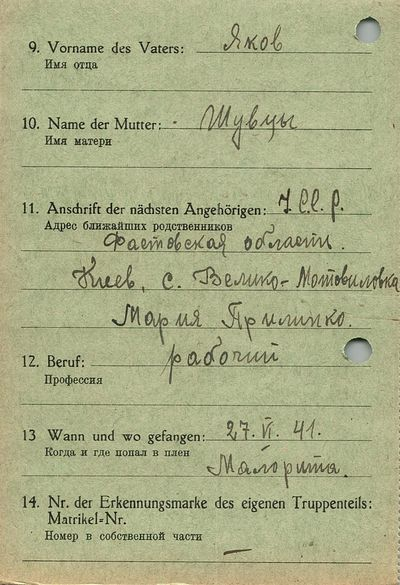 9. Vorname des Vaters: Яков
Имя отца
10. Name der Mutter: Шувцы
Имя матери
11. Anschrift der nächsten Angehörigen: У.С.С.Р.
Адрес ближайших родственников
Фастовская области.
Киев, с. Велико-Мотовиловка
Мария Прилипко.
12. Beruf: рабочий
Профессия
13 Wann und wo gefangen: 27. VI. 41.
Когда и где попал в плен
Малорита.
14. Nr. der Erkennungsmarke des eigenen Truppenteils:
Matrikel=Nr.
Номер в собственной части
—